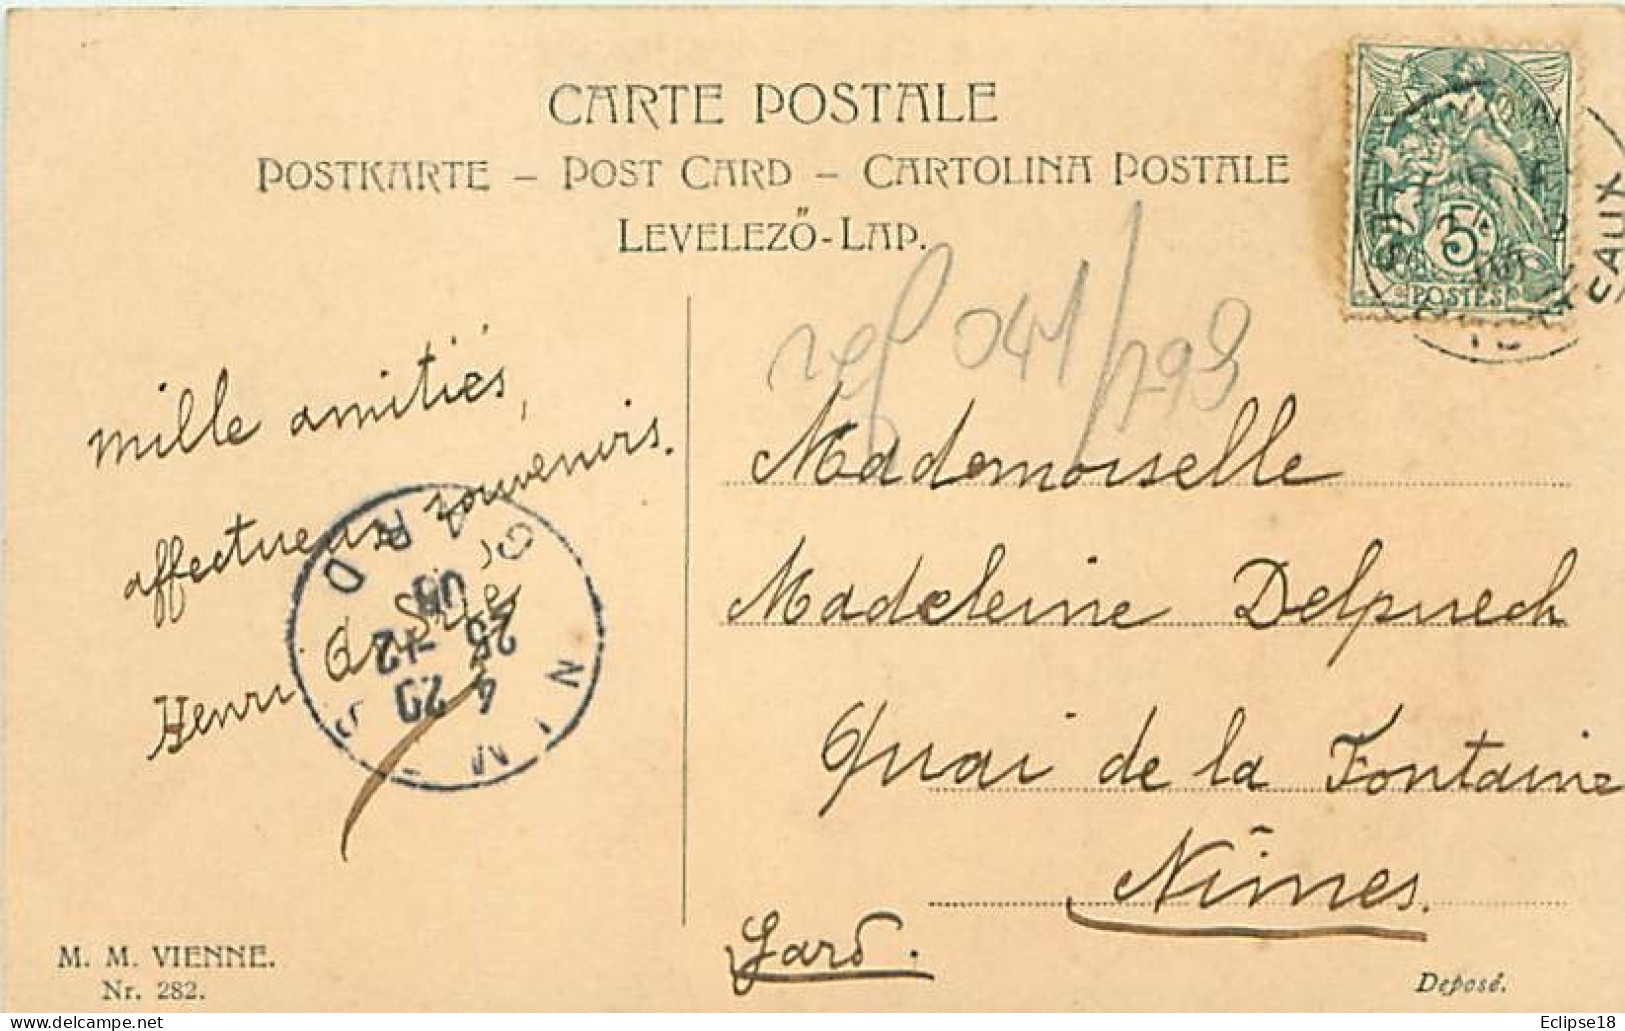 CARTE POSTALE
POSTKARTE – POST CARD – CARTOLINA POSTALE
LEVELEZŐ-LAP.
5
POSTES
EAUX
ref 041/793
mille amitiés,
affectueux souvenirs.
Henri
GARD
NIM
4 20
25 -12
06
Mademoiselle
Madeleine Delpuech
Quai de la Fontaine
Nîmes.
Gard.
M. M. VIENNE.
Nr. 282.
Deposé.
delcampe.net
Eclipse18